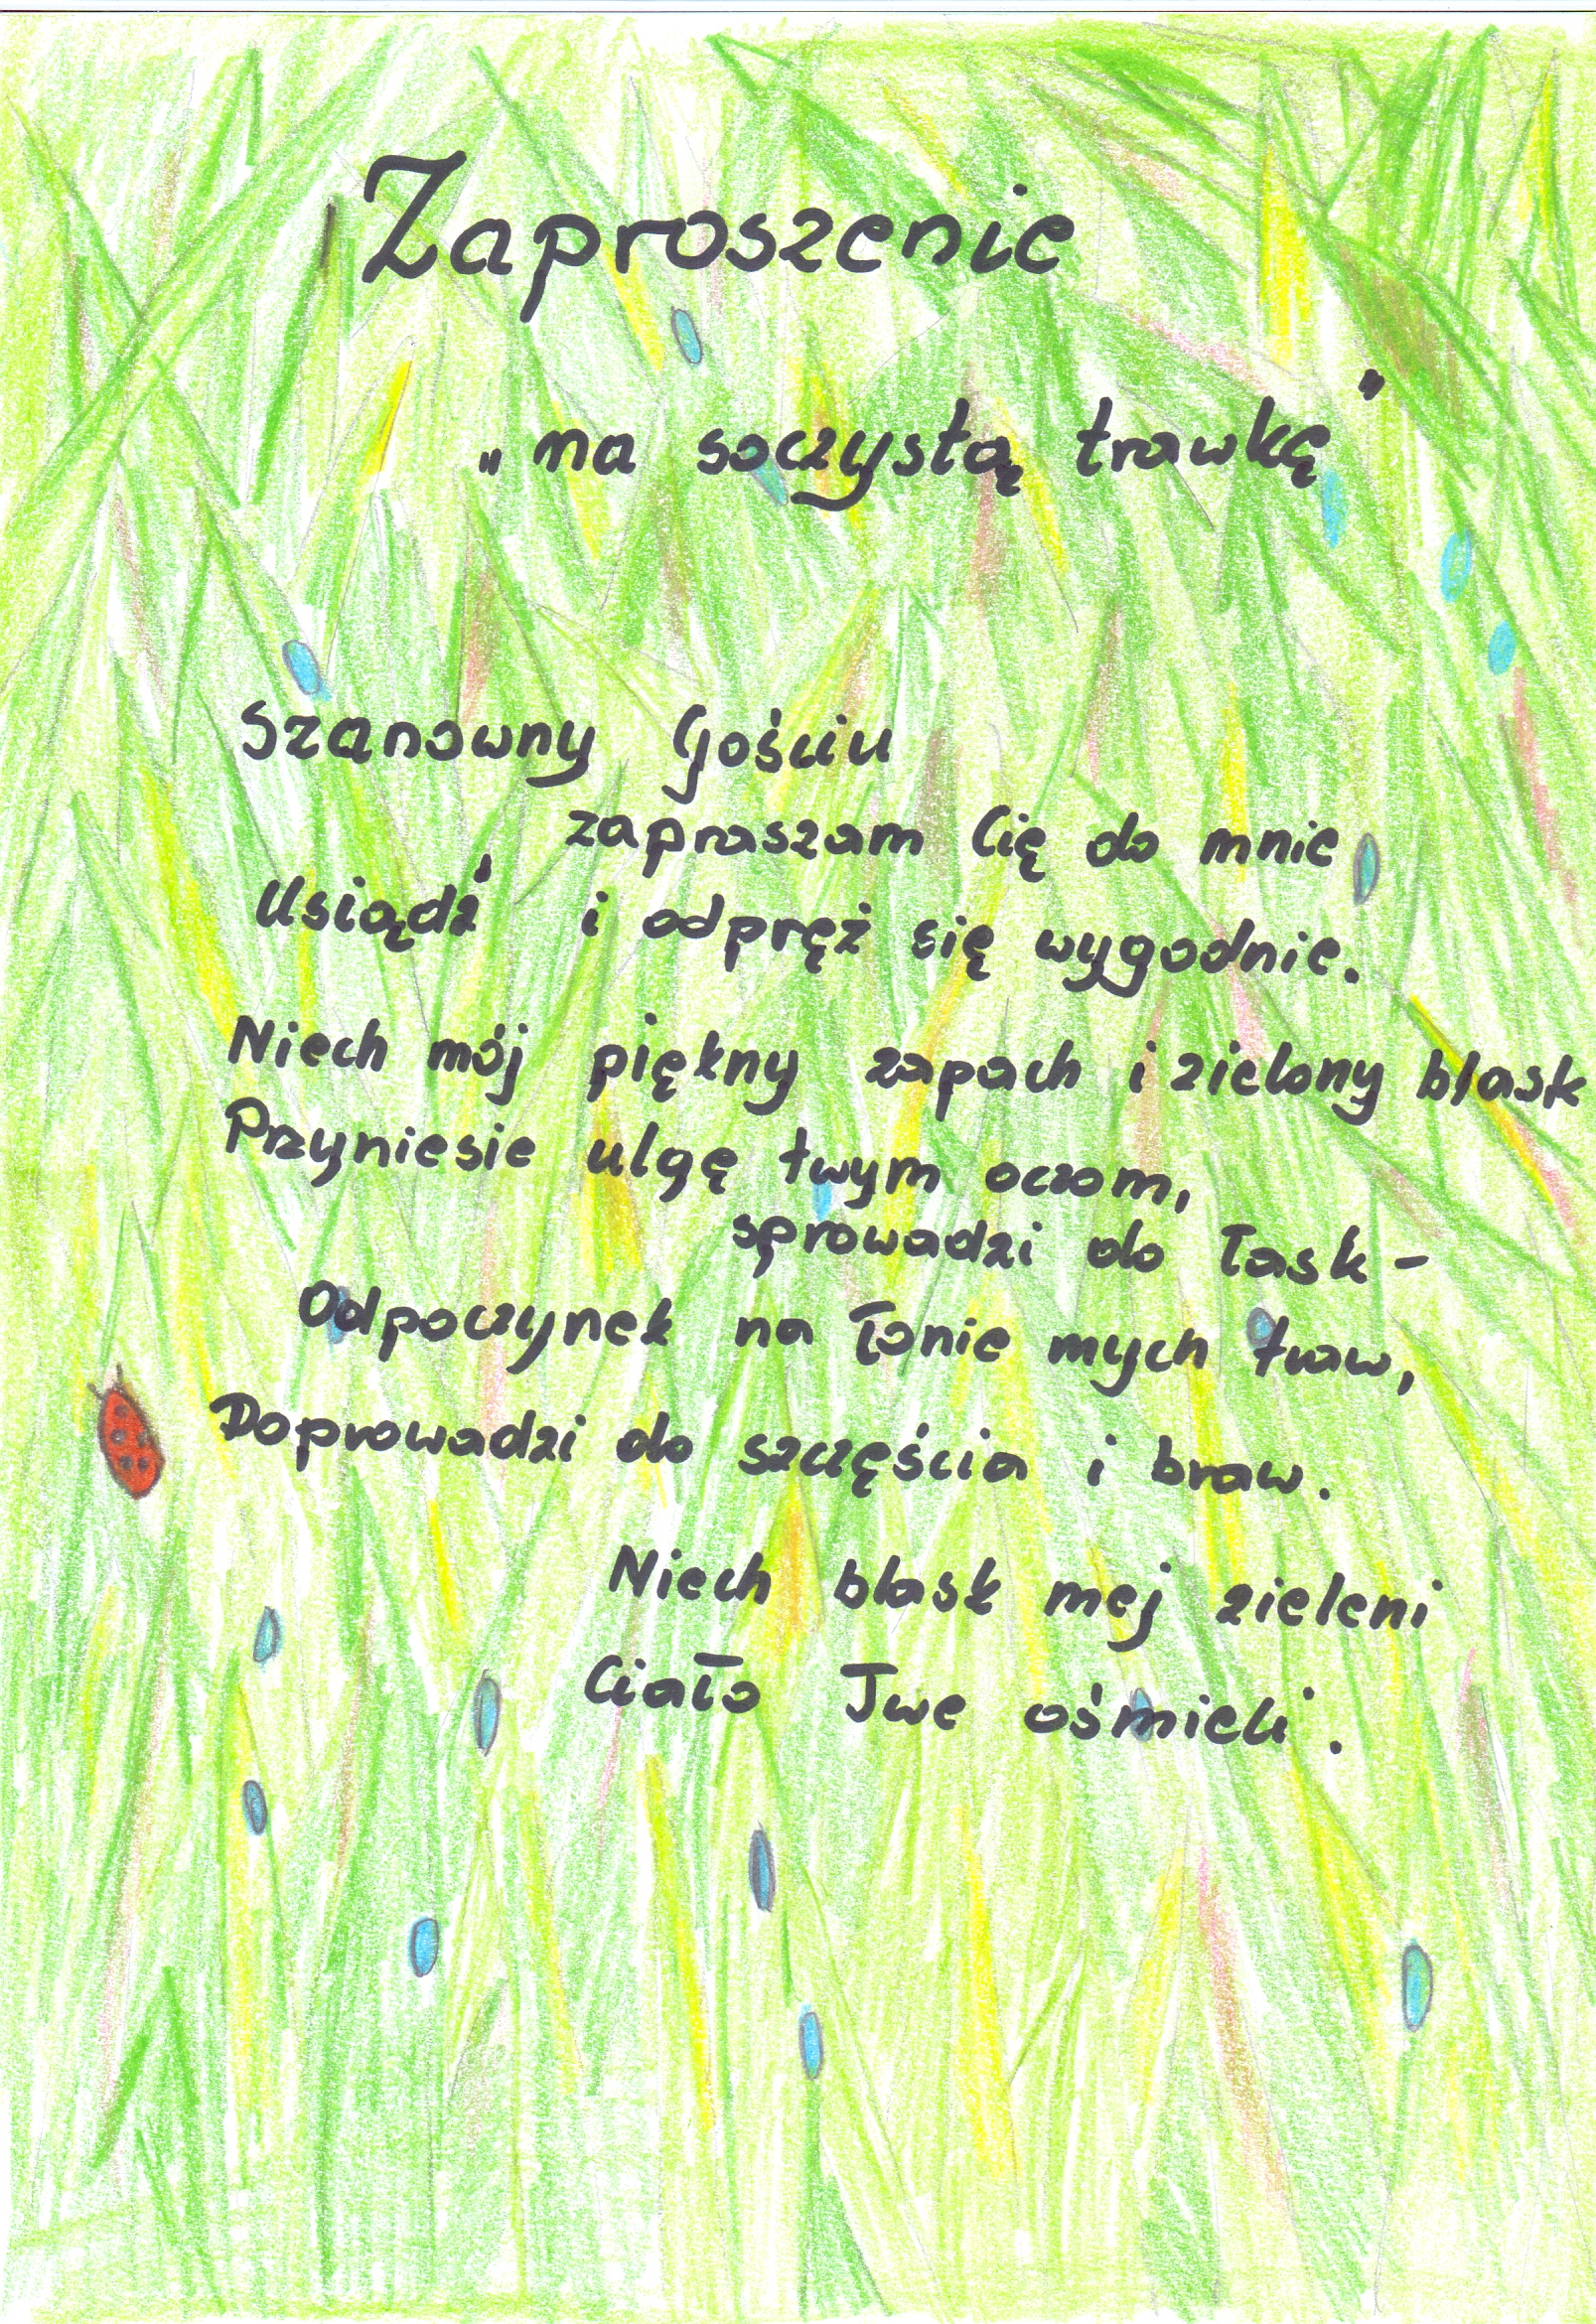 Zaproszenie
„na soczystą trawkę"
Szanowny Gościu
zapraszam Cię do mnie
Usiądź i odpręż się wygodnie.
Niech mój piękny zapach i zielony blask
Przyniesie ulgę twym oczom,
sprowadzi do łask-
Odpoczynek na łonie mych traw,
Doprowadzi do szczęścia i braw.
Niech blask mej zieleni
Ciało Twe ośmieli.